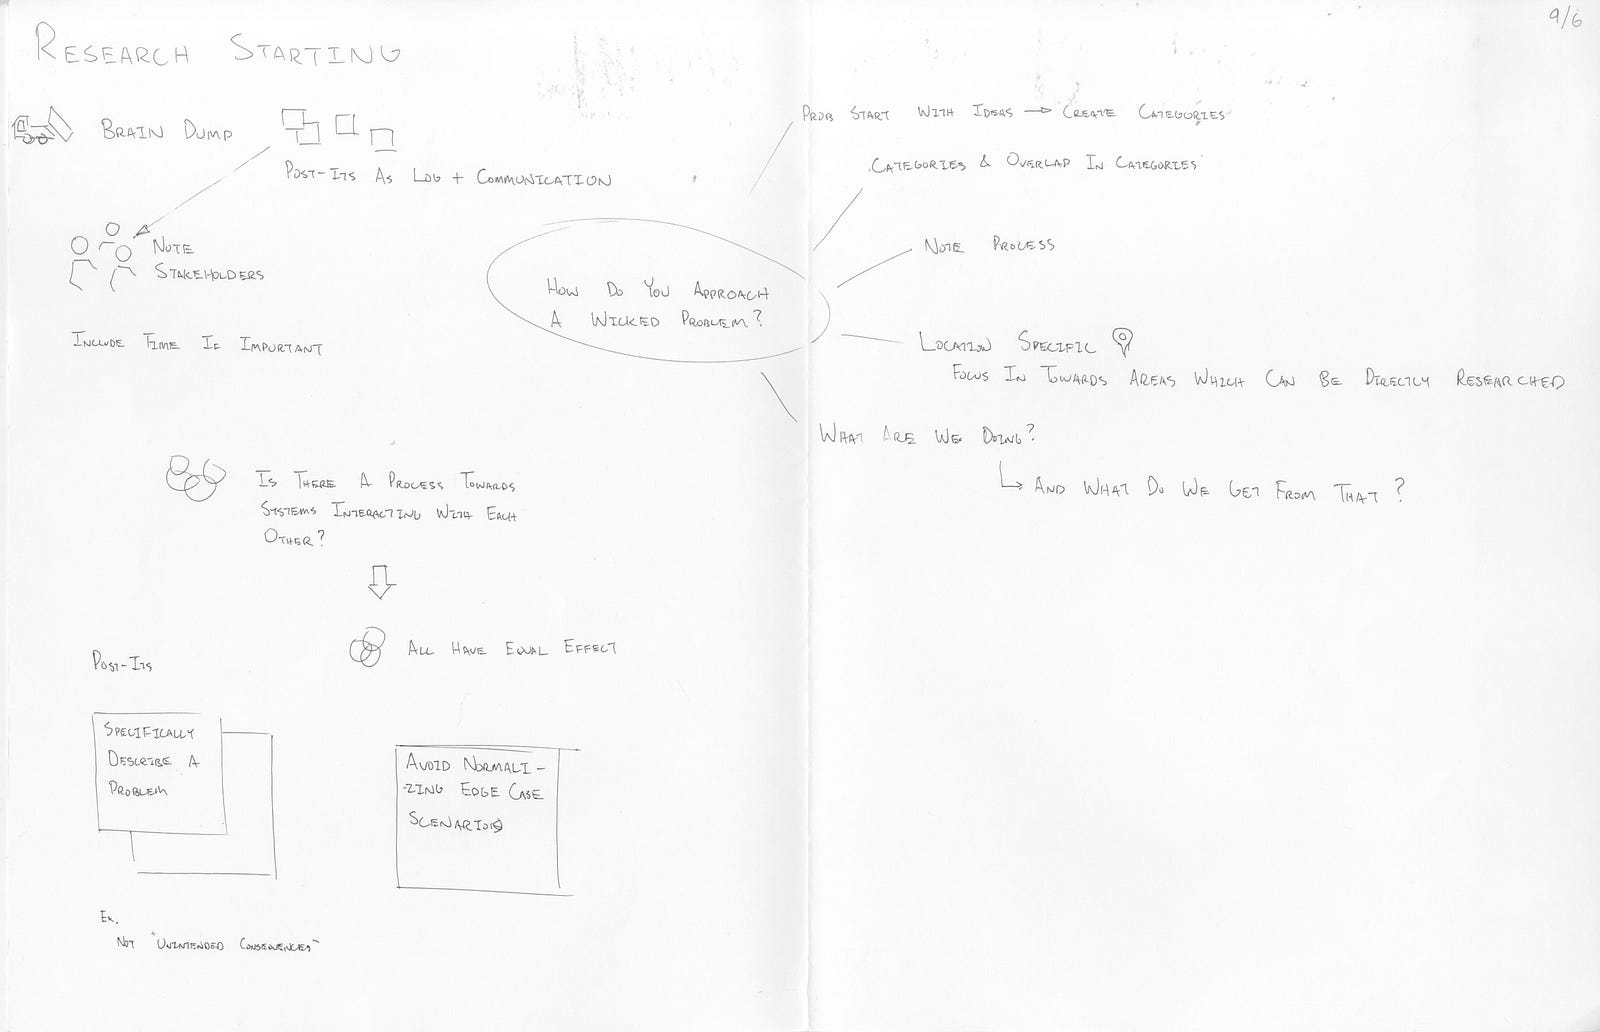 RESEARCH STARTING
9/6
BRAIN DUMP
POST-ITS AS LOG + COMMUNICATION
NOTE
STAKEHOLDERS
INCLUDE TIME IF IMPORTANT
HOW DO YOU APPROACH
A WICKED PROBLEM?
PROB START WITH IDEAS → CREATE CATEGORIES
CATEGORIES & OVERLAP IN CATEGORIES
NOTE PROCESS
LOCATION SPECIFIC
FOCUS IN TOWARDS AREAS WHICH CAN BE DIRECTLY RESEARCHED
WHAT ARE WE DOING?
AND WHAT DO WE GET FROM THAT?
IS THERE A PROCESS TOWARDS
SYSTEMS INTERACTING WITH EACH
OTHER?
ALL HAVE EQUAL EFFECT
POST-ITS
SPECIFICALLY
DESCRIBE A
PROBLEM
AVOID NORMALI-
ZING EDGE CASE
SCENARIOS
EX.
NOT "UNINTENDED CONSEQUENCES"